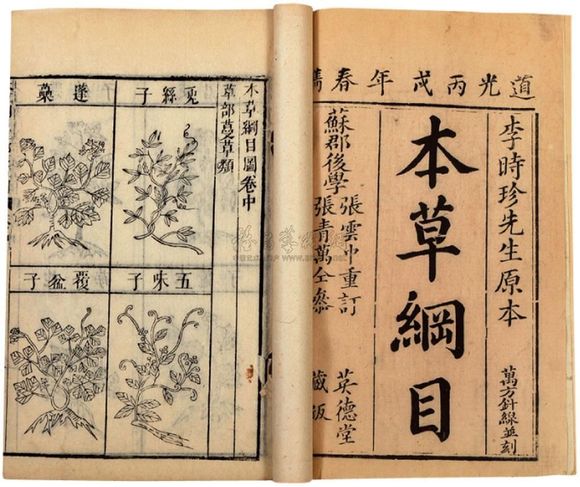 道光丙戌年春鐫
李時珍先生原本
萬方針線並刻
本草綱目
蘇郡後學
張雲中重訂
張青萬全參
英德堂
藏板
本草綱目圖卷中
草部蔓草類
兎絲子
蓬蘽
五味子
覆盆子